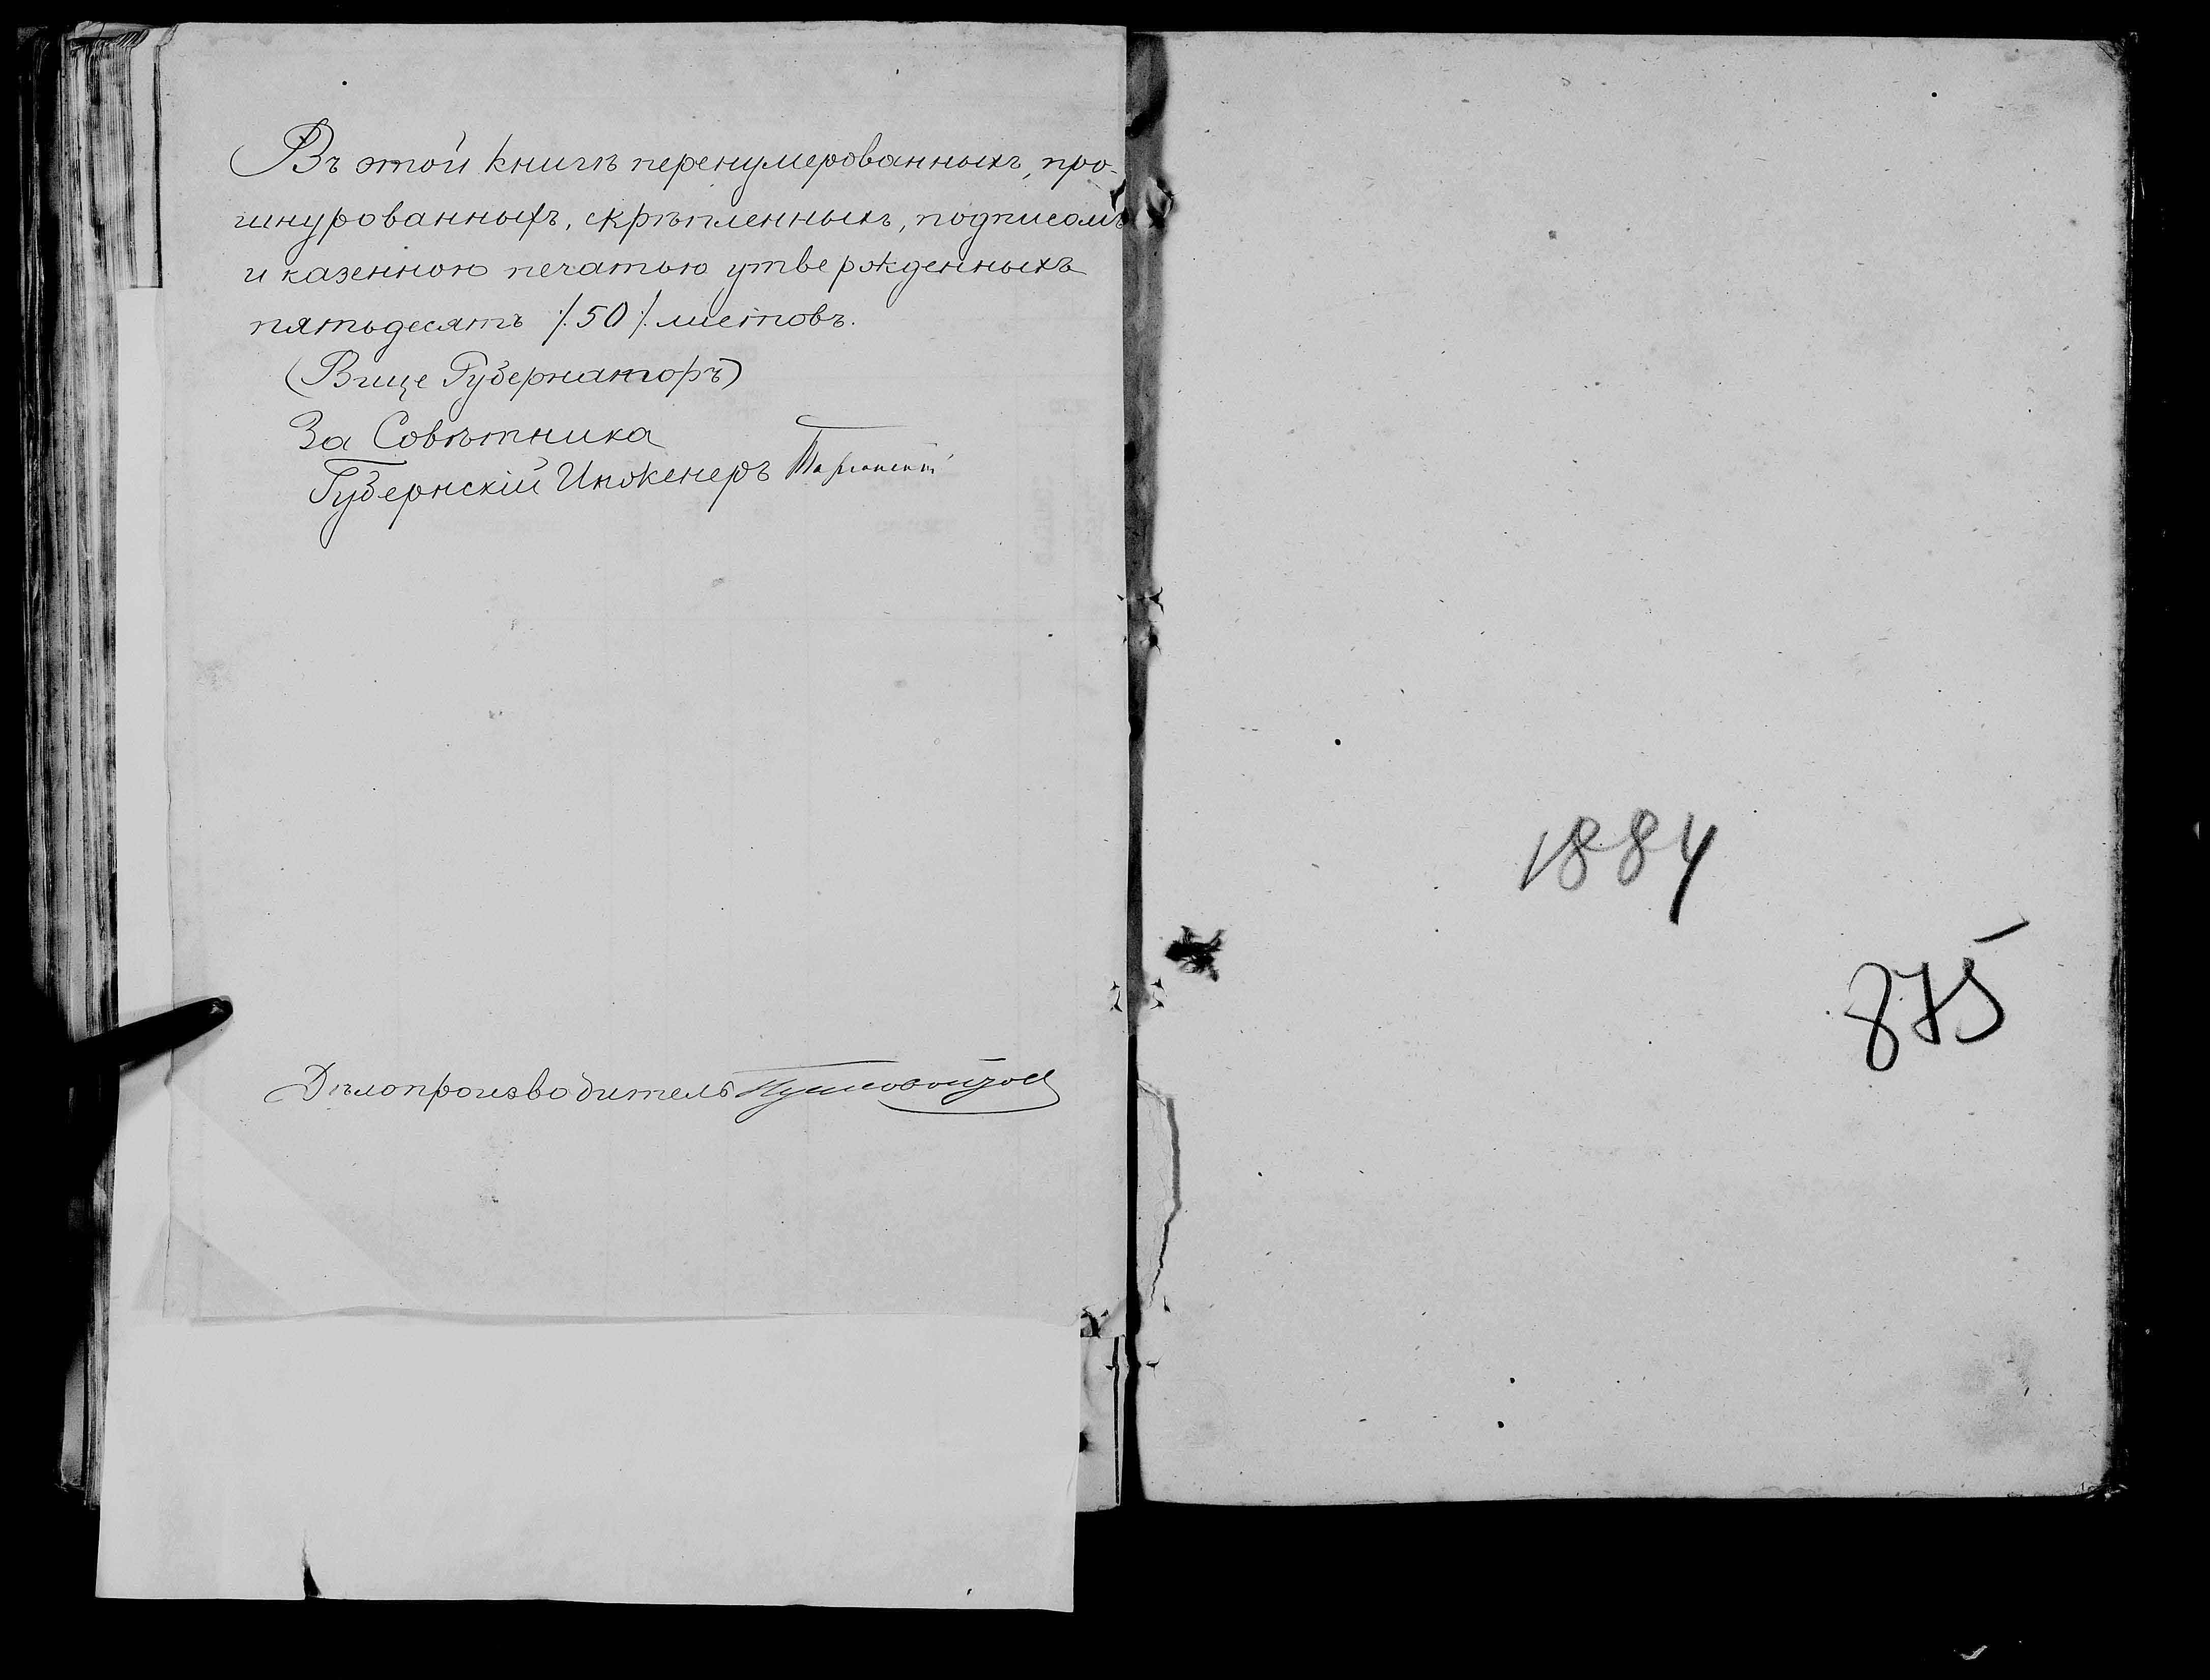 Въ этой книгѣ перенумерованныхъ, про-
шнурованныхъ, скрѣпленныхъ, подписомъ
и казенною печатью утвержденныхъ
пятьдесятъ /.50/. листовъ.
(Вице Губернаторъ)
За Совѣтника
Губернскій Инженеръ
Дѣлопроизводитель
1884
875